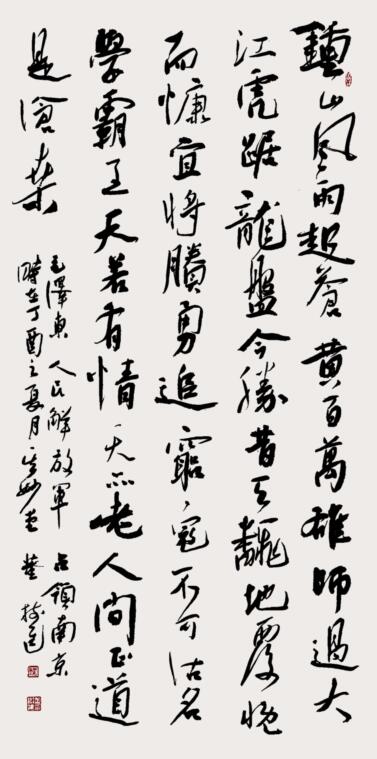 鍾山風雨起蒼黃百萬雄師過大
江虎踞龍盤今勝昔天飜地覆慨
而慷宜將賸勇追窮寇不可沽名
學霸王天若有情天亦老人間正道
是滄桑
毛澤東 人民解放軍 占領南京
時在丁酉之夏月 董